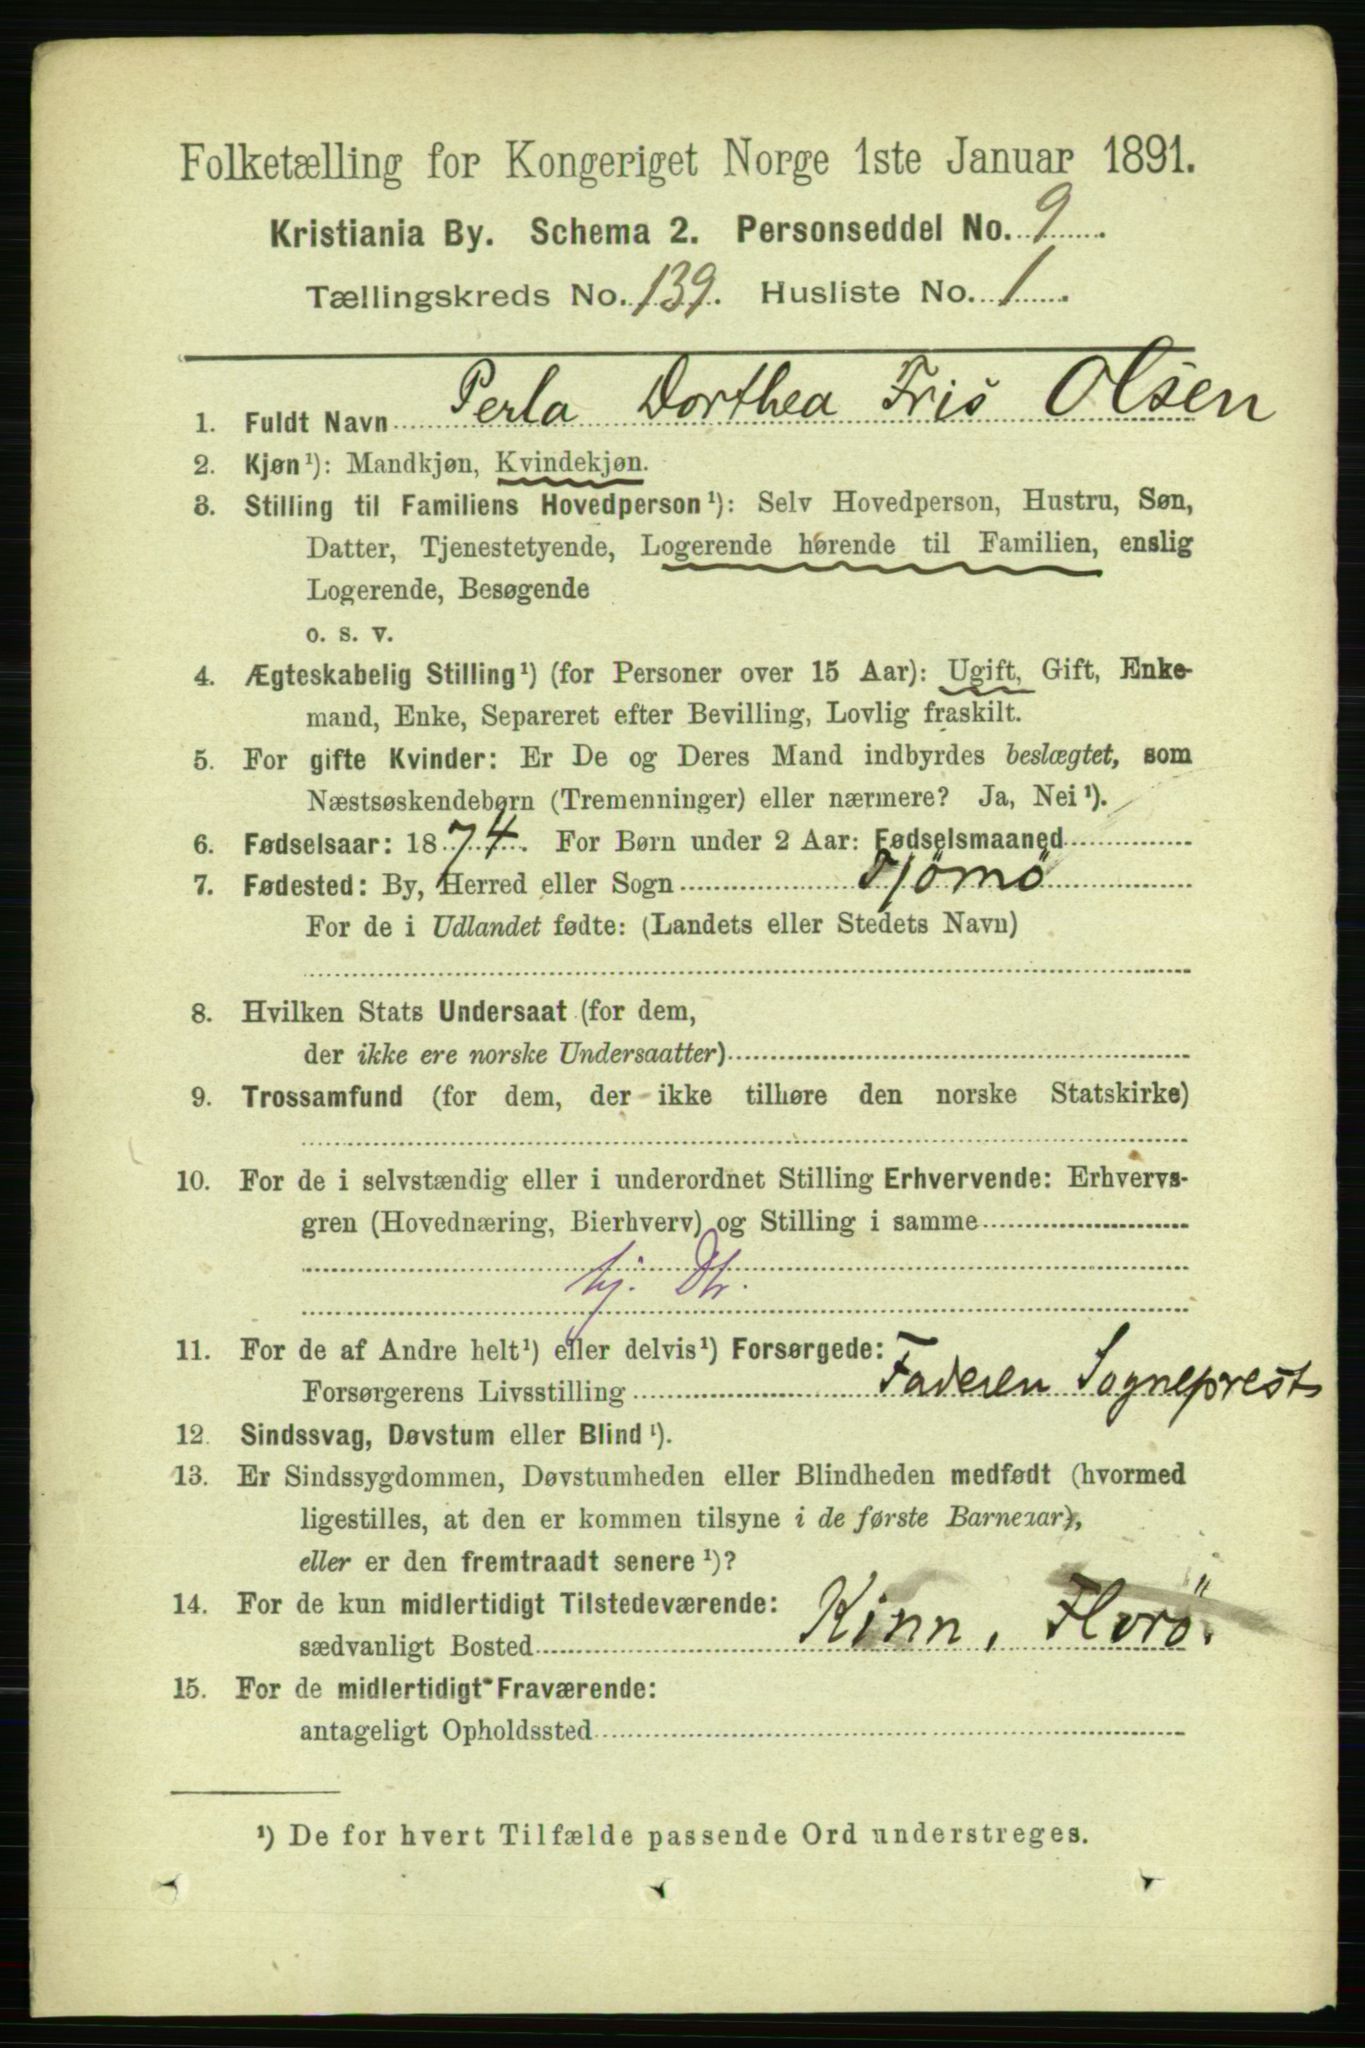 Folketælling for Kongeriget Norge 1ste Januar 1891.
Kristiania By. Schema 2. Personseddel No. 9.
Tællingskreds No. 139. Husliste No. 1.
1. Fuldt Navn Perla Dorthea Fris Olsen
2. Kjøn¹): Mandkjøn, Kvindekjøn.
3. Stilling til Familiens Hovedperson¹): Selv Hovedperson, Hustru, Søn,
Datter, Tjenestetyende, Logerende hørende til Familien, enslig
Logerende, Besøgende
o. s. v.
4. Ægteskabelig Stilling¹) (for Personer over 15 Aar): Ugift, Gift, Enke-
mand, Enke, Separeret efter Bevilling, Lovlig fraskilt.
5. For gifte Kvinder: Er De og Deres Mand indbyrdes beslægtet, som
Næstsøskendebørn (Tremenninger) eller nærmere? Ja, Nei¹).
6. Fødselsaar: 1874. For Børn under 2 Aar: Fødselsmaaned
7. Fødested: By, Herred eller Sogn Tjömö
For de i Udlandet fødte: (Landets eller Stedets Navn)
8. Hvilken Stats Undersaat (for dem,
der ikke ere norske Undersaatter)
9. Trossamfund (for dem, der ikke tilhøre den norske Statskirke)
10. For de i selvstændig eller i underordnet Stilling Erhvervende: Erhvervs-
gren (Hovednæring, Bierhverv) og Stilling i samme
hj. Dtr.
11. For de af Andre helt¹) eller delvis¹) Forsørgede:
Forsørgerens Livsstilling Faderen Sogneprest
12. Sindssvag, Døvstum eller Blind¹).
13. Er Sindssygdommen, Døvstumheden eller Blindheden medfødt (hvormed
ligestilles, at den er kommen tilsyne i de første Barneaar),
eller er den fremtraadt senere¹)?
14. For de kun midlertidigt Tilstedeværende:
sædvanligt Bosted Kinn, Florö.
15. For de midlertidigt Fraværende:
antageligt Opholdssted
¹) De for hvert Tilfælde passende Ord understreges.